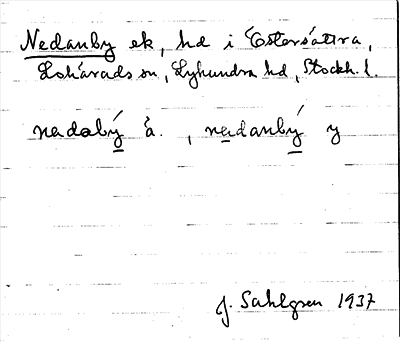 Nedanby ek, hd i Östersättra,
Lohärads sn, Lyhundra hd, Stockh. l.
nedabý ä. , nedanbý y
J. Sahlgren 1937